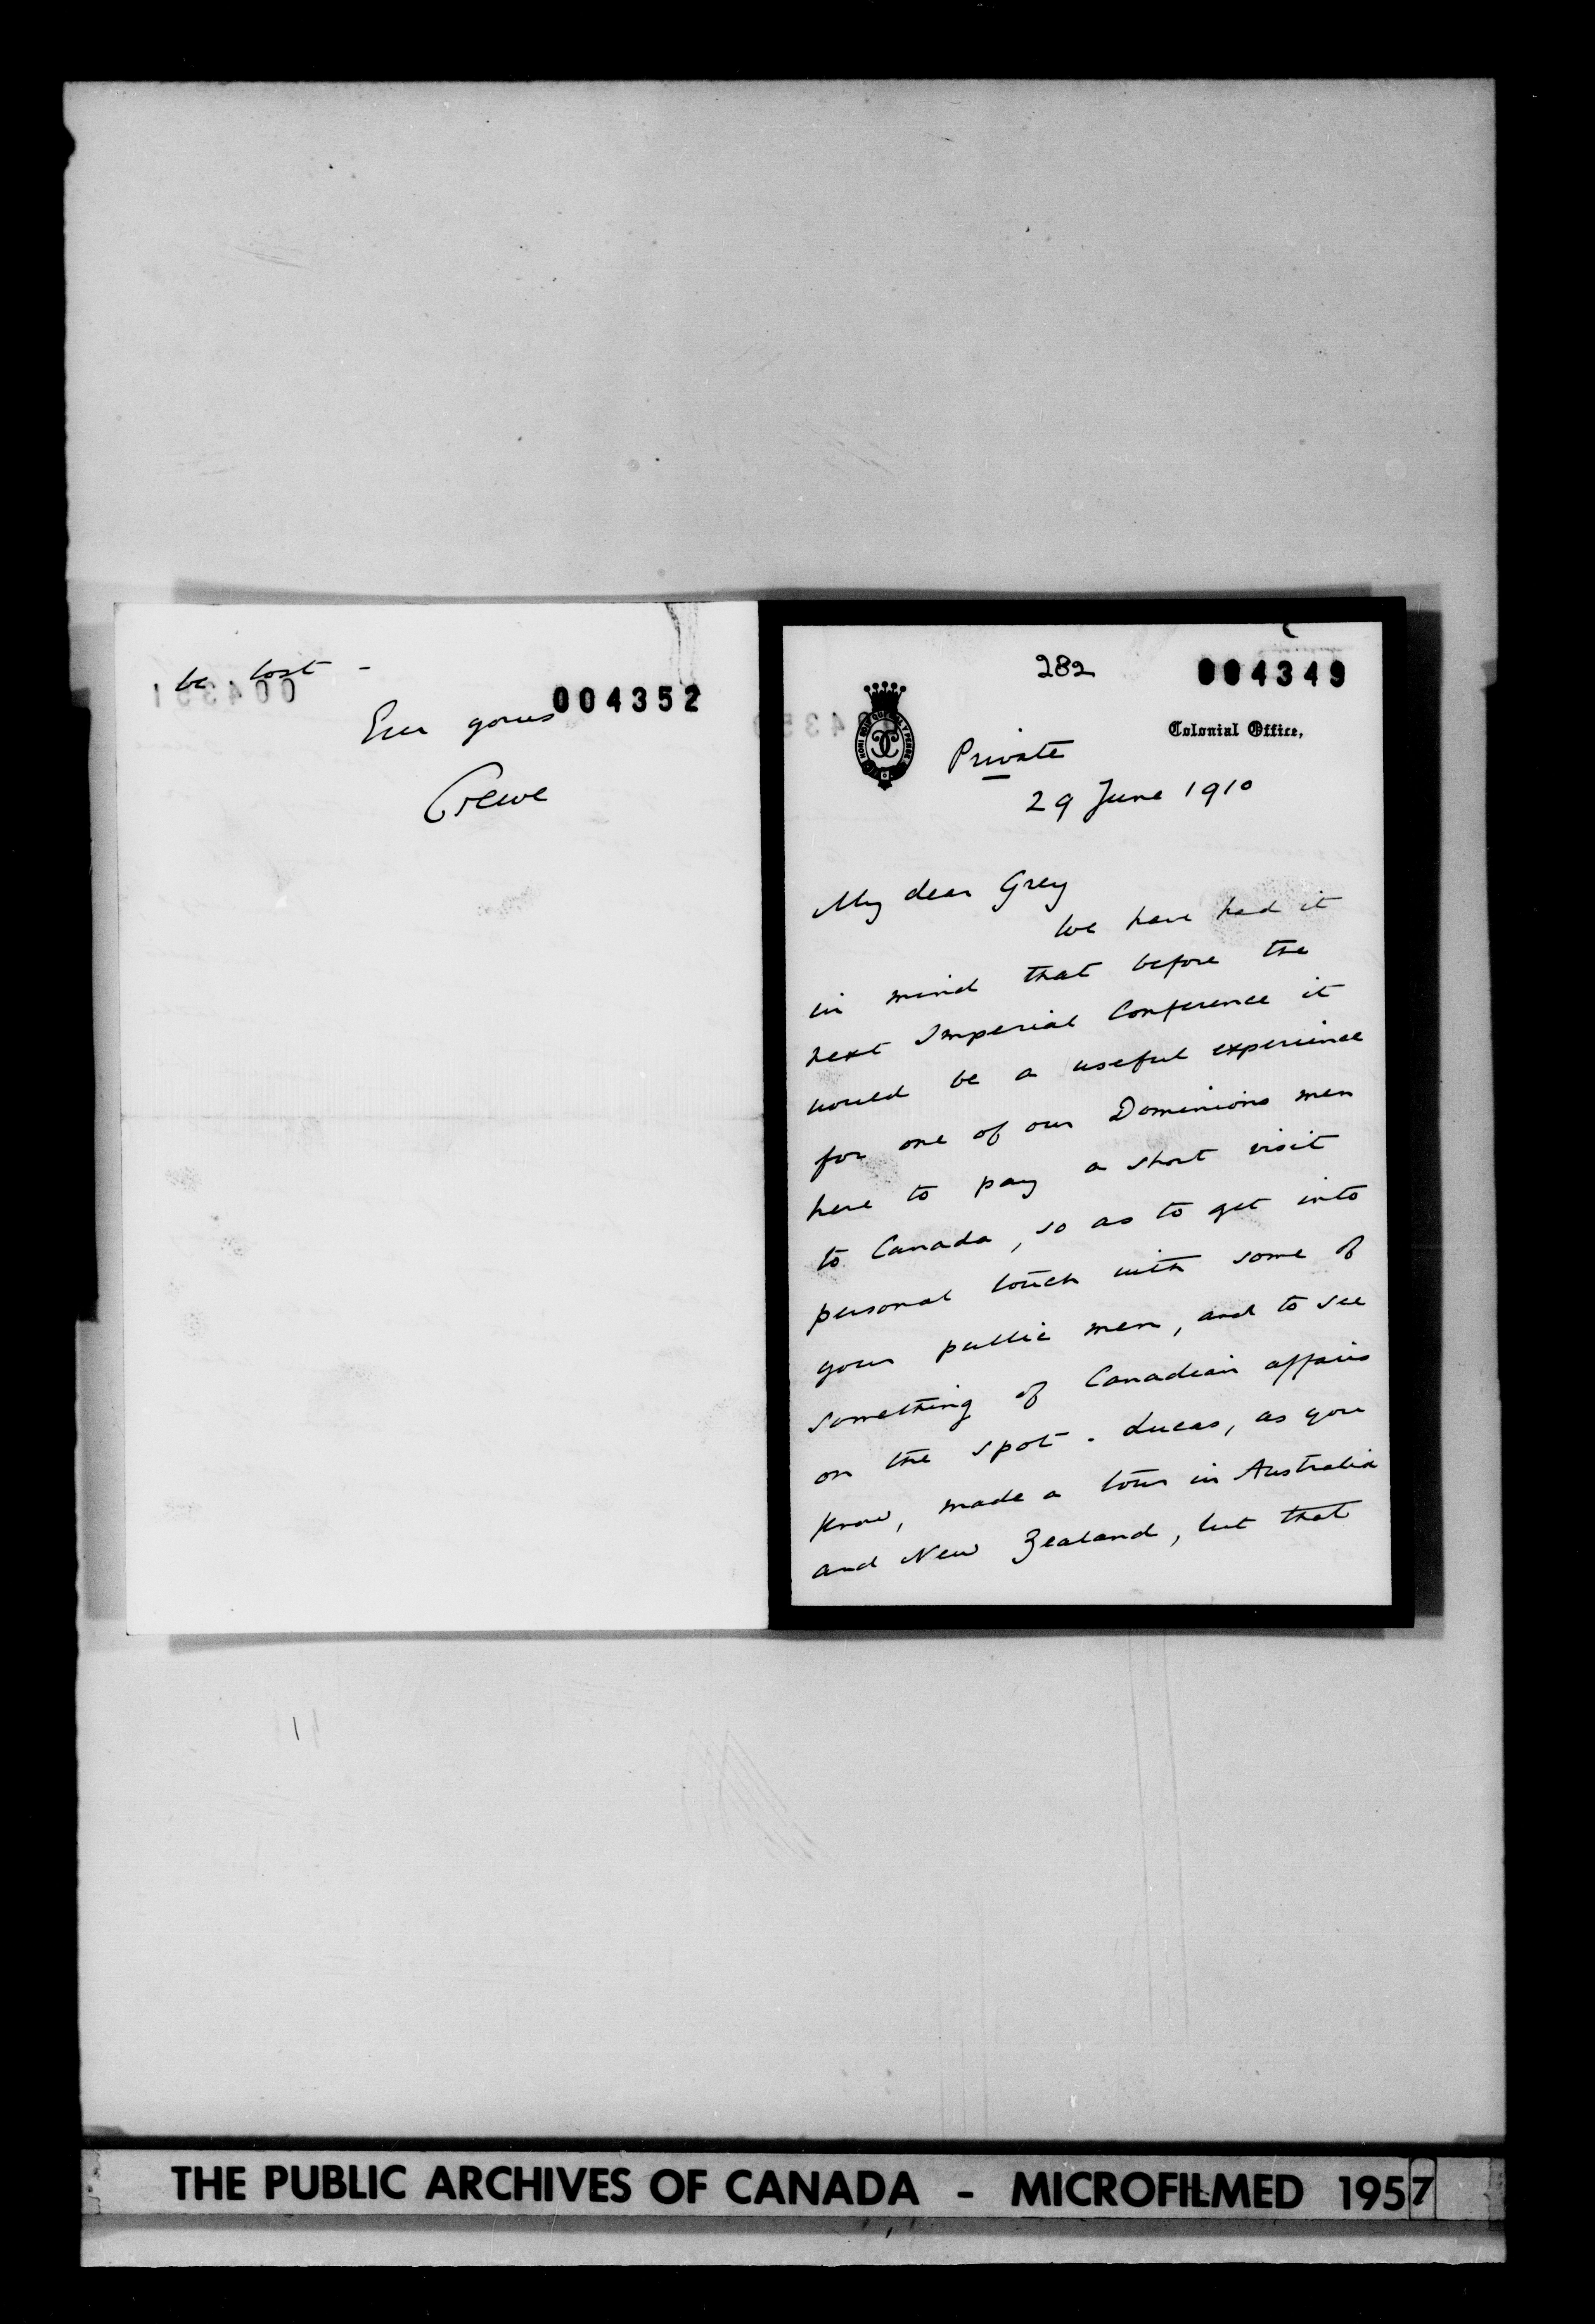 be lost -
004352
Ever yours
Crewe
282
004349
Colonial Office,
HONI SOIT QUI MAL Y PENSE
Private
29 June 1910
My dear Grey
We have had it
in mind that before the
next Imperial Conference it
would be a useful experience
for one of our Dominions men
here to pay a short visit
to Canada, so as to get into
personal touch with some of
your public men, and to see
something of Canadian affairs
on the spot. Lucas, as you
know, made a tour in Australia
and New Zealand, but that
THE PUBLIC ARCHIVES OF CANADA - MICROFILMED 1957